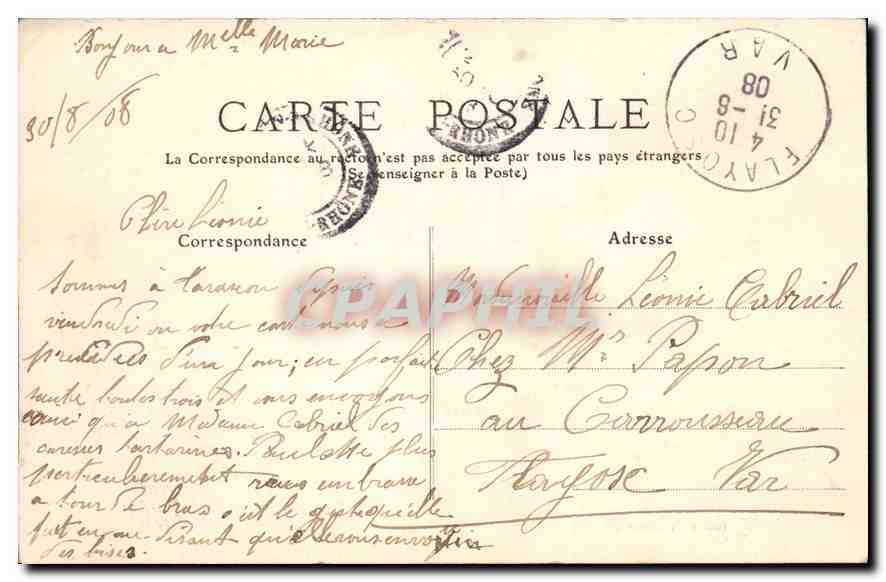 Bonjour a Melle Marie
30/8/08
CARTE POSTALE
La Correspondance au recto n'est pas acceptée par tous les pays étrangers
(Se renseigner à la Poste)
FLAYOSC
VAR
4 10
31 -8
08
RHONE
RHONE
Chère Léonie
Correspondance
Sommes à Tarascon depuis
vendredi ou votre carte nous a
précédées d'un jour; en parfaite
santé toutes trois et vous envoyons
ainsi qu'à Madame Cabriel des
caresses tartarines. Paulette plus
particulièrement vous embrasse
a tour de bras c'est le geste qu'elle
fait en me disant qu'elle vous envoie
des bises.
Adresse
Mademoiselle Léonie Cabriel
Chez Mr Papon
au Carrousseau
Flayosc Var
CPAPHIL